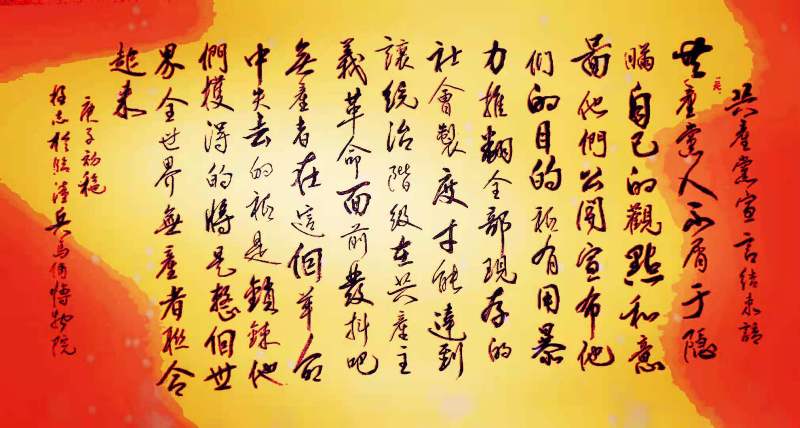 共產黨宣言結束語
共產黨人不屑于隱
瞞自己的觀點和意
圖他們公開宣布他
們的目的祇有用暴
力推翻全部現存的
社會製度才能達到
讓統治階級在共產主
義革命面前發抖吧
無產者在這個革命
中失去的祇是鎖鍊他
們獲得的將是整個世
界全世界無產者聯合
起來
庚子初秋
志於臨潼兵馬俑博物院